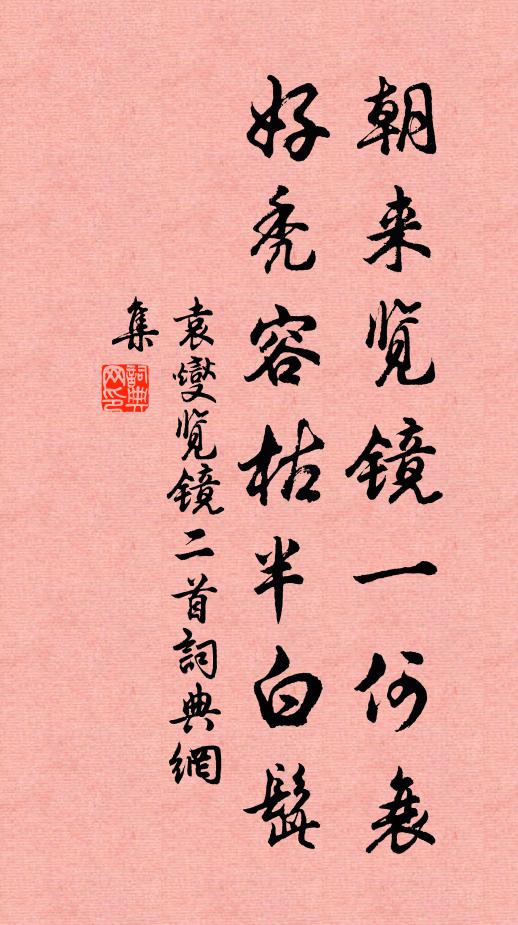 朝来览镜一何衰
好秃容枯半白髭
袁燮览镜二首詞典網
集
詞典网印